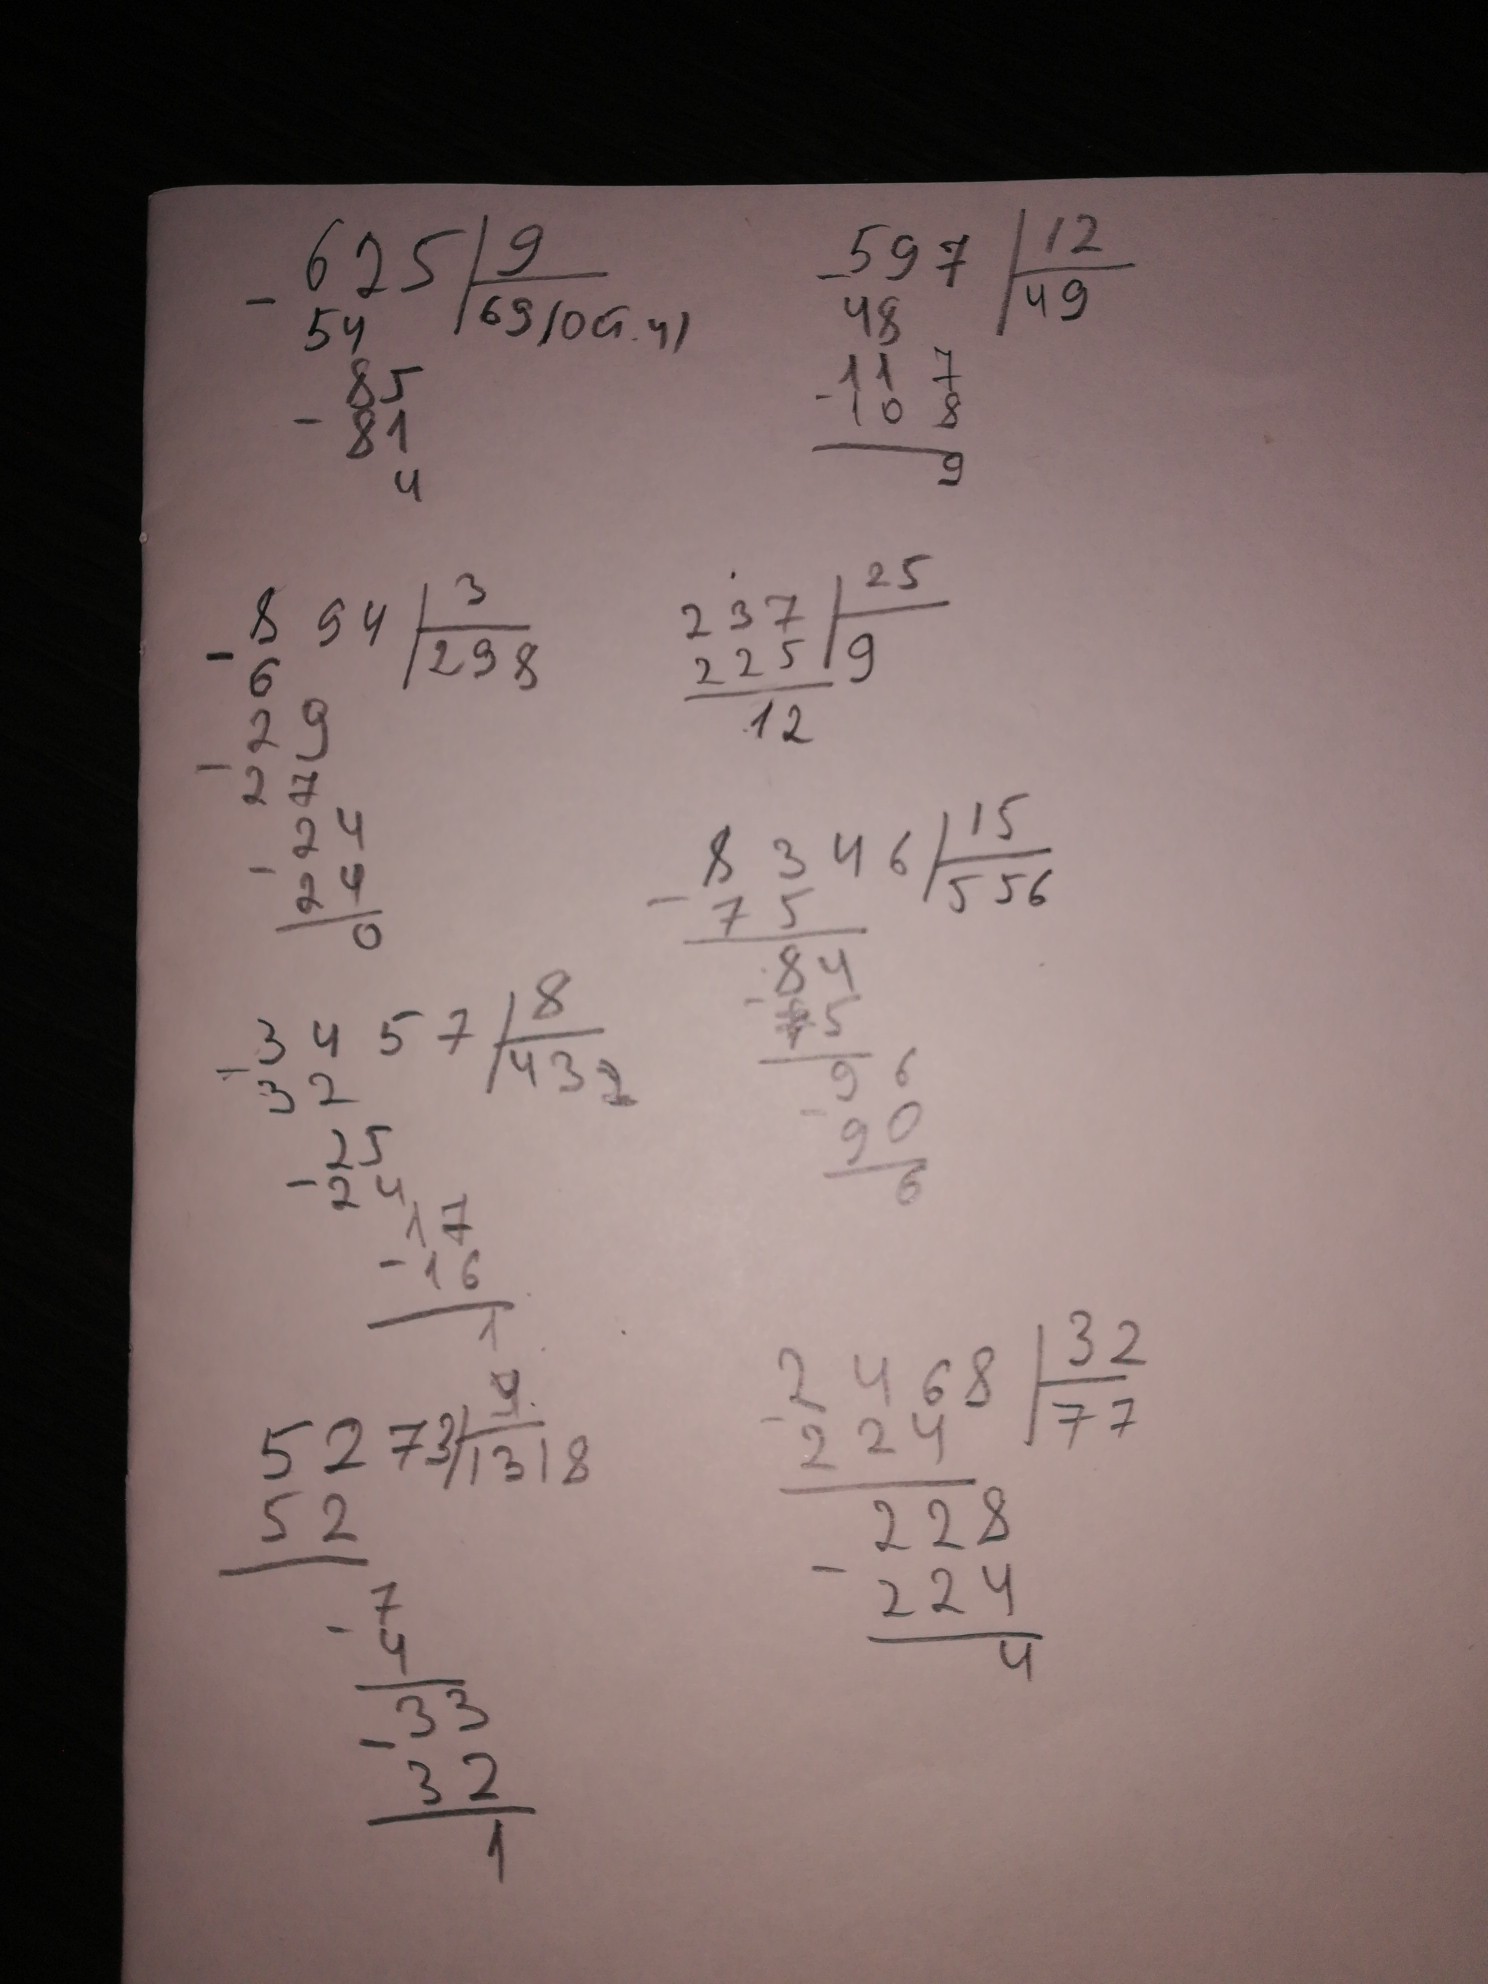 625 9
- 54 69 (ост. 4)
85
- 81
4
- 597 12
48 49
117
- 108
9
- 894 3
6 298
29
- 27
24
- 24
0
237 25
225 9
12
- 8346 15
75 556
84
- 75
96
- 90
6
- 3457 8
32 432
25
- 24
17
- 16
1
5273 4
52 1318
7
- 4
33
- 32
1
- 2468 32
224 77
228
- 224
4